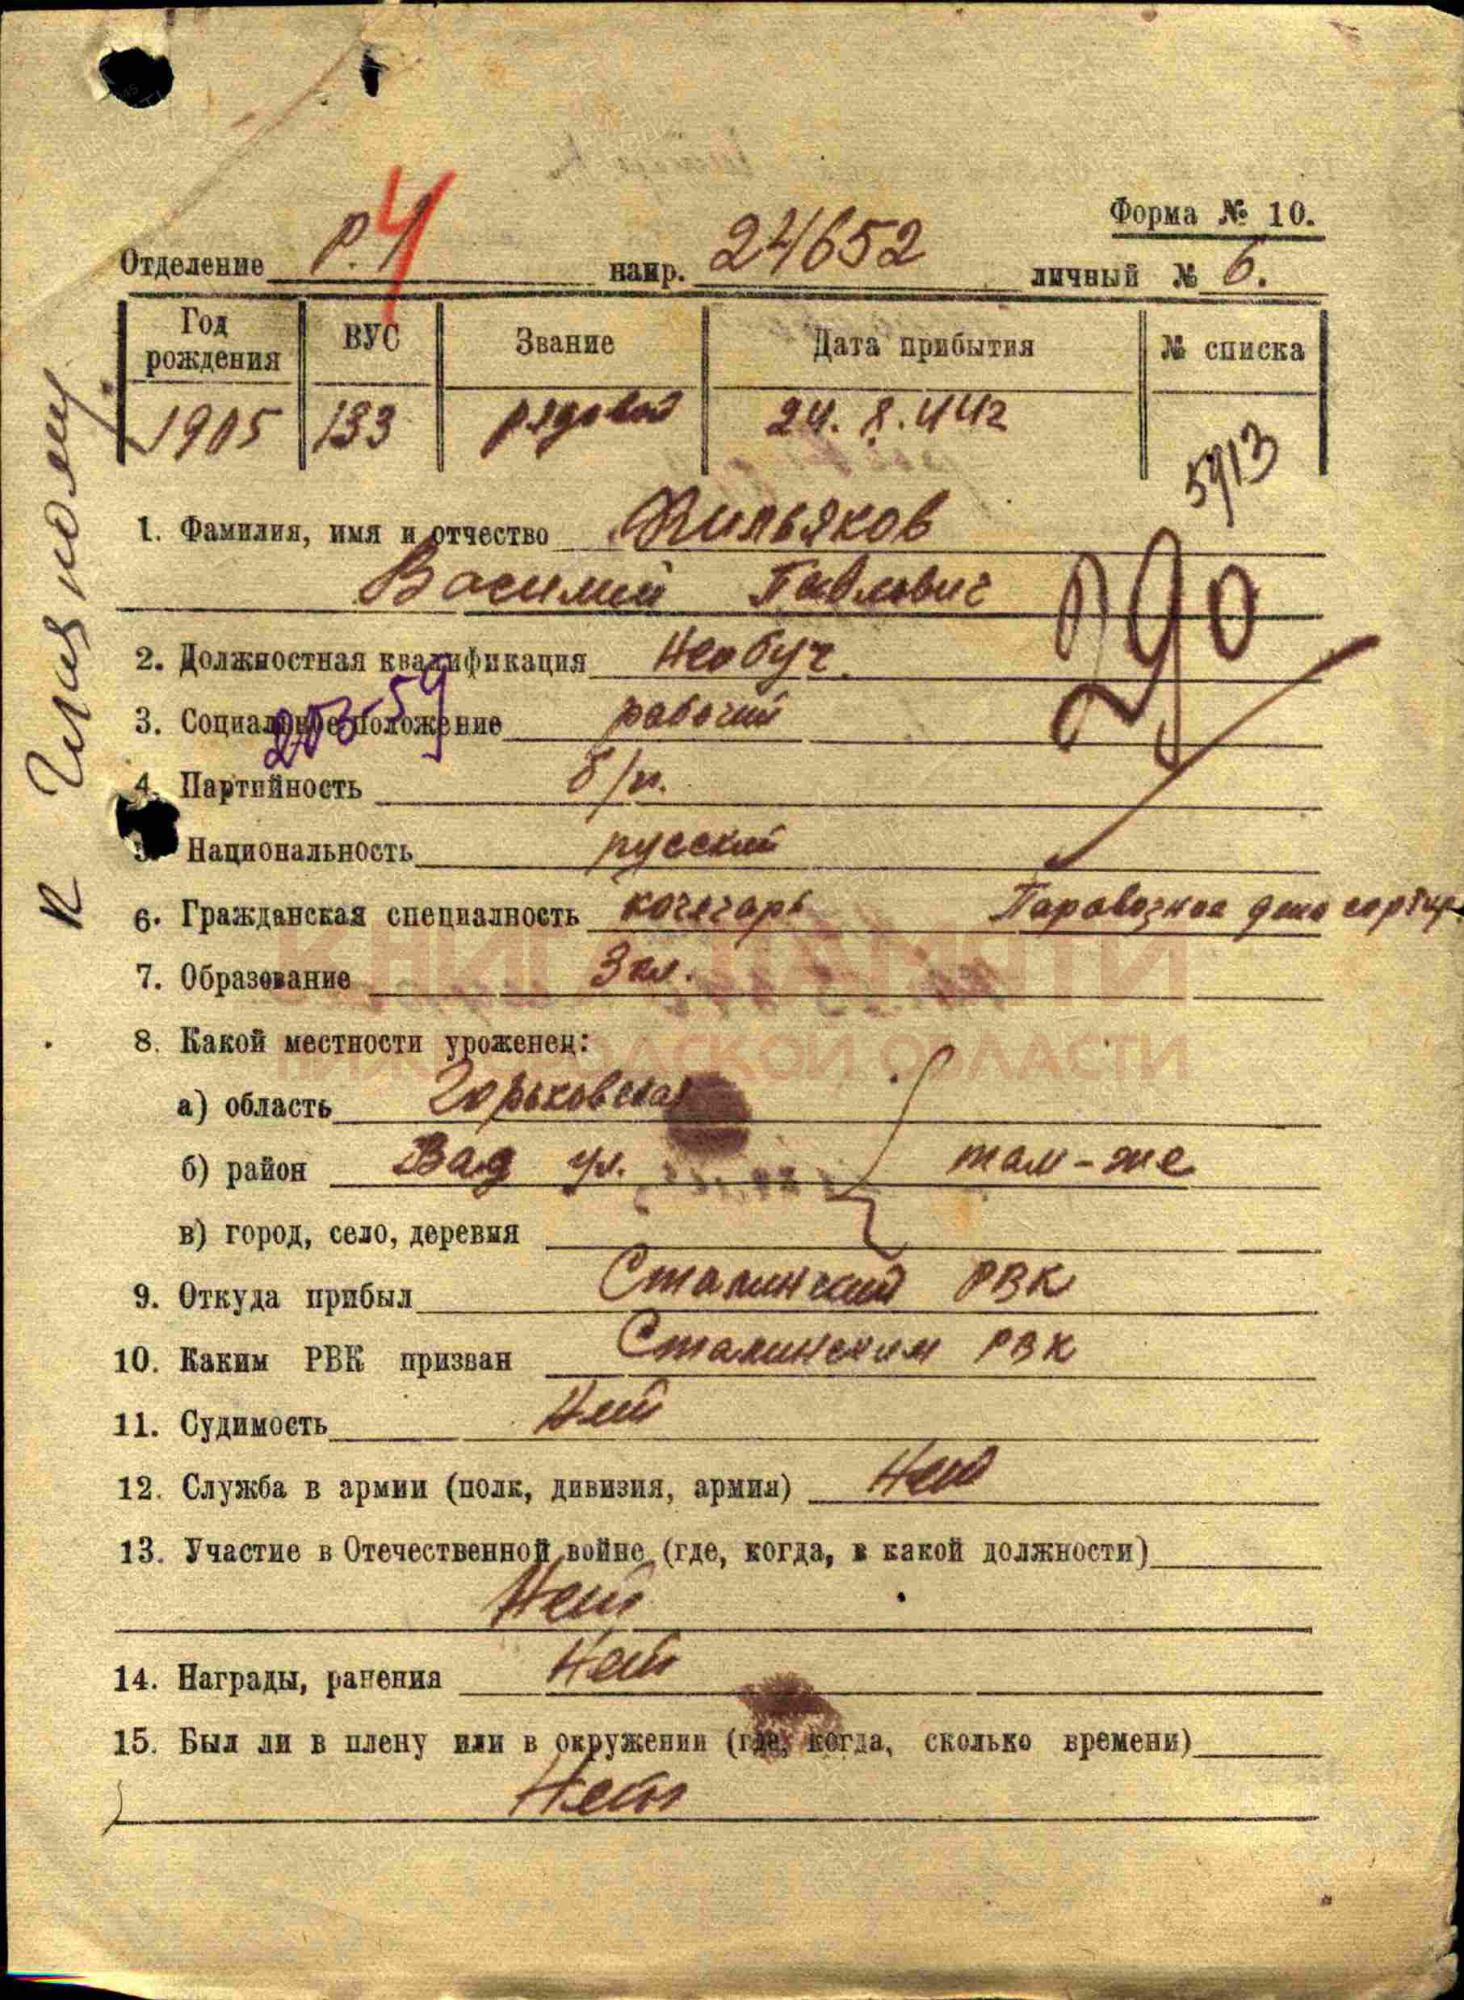 Форма № 10.
Отделение р. 4 напр. 24652 личный № 6.
Год рождения ВУС Звание Дата прибытия № списка
1905 133 рядовой 24. 8. 44 г
5913
1. Фамилия, имя и отчество Жильяков
Василий Павлович
290
2. Должностная квалификация необуч.
3. Социальное положение рабочий
203-59
4. Партийность б/п.
5. Национальность русский
6. Гражданская специалность кочегар Паровозное депо сортир.
7. Образование 3 кл.
КНИГА ПАМЯТИ
8. Какой местности уроженец:
НИЖЕГОРОДСКОЙ ОБЛАСТИ
а) область Горьковская
б) район Вад ул. там-же
в) город, село, деревня
9. Откуда прибыл Сталинский РВК
10. Каким РВК призван Сталинским РВК
11. Судимость Нет
12. Служба в армии (полк, дивизия, армия) Нет
13. Участие в Отечественной войне (где, когда, в какой должности)
Нет
14. Награды, ранения Нет
15. Был ли в плену или в окружении (где, когда, сколько времени)
Нет